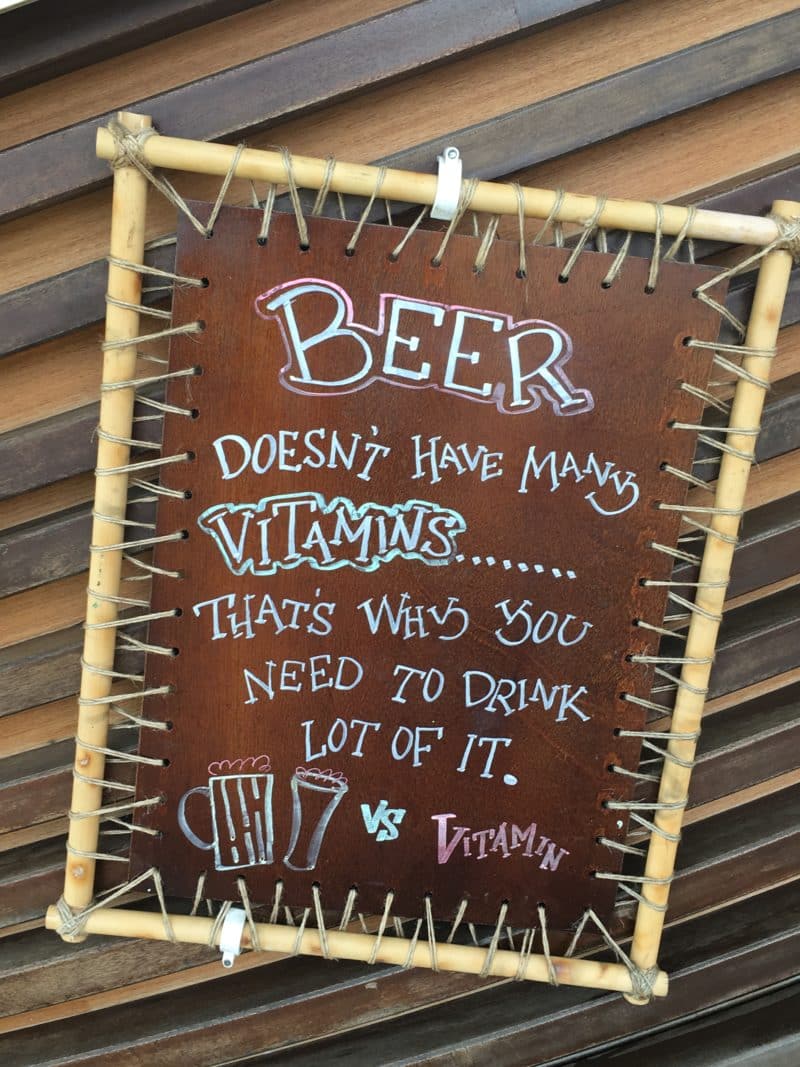 BEER
DOESN'T HAVE MANY
VITAMINS........
THAT'S WHY YOU
NEED TO DRINK
LOT OF IT.
VS VITAMIN